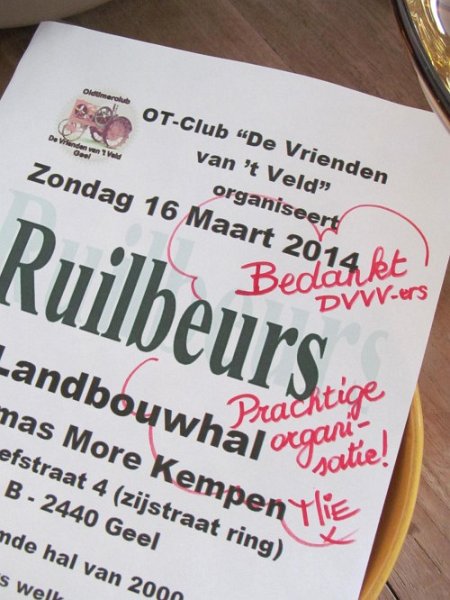 Oldtimerclub
De Vrienden van 't Veld
Geel
OT-Club "De Vrienden
van 't Veld"
organiseert
Zondag 16 Maart 2014
Bedankt
DVVV-ers
Ruilbeurs
Landbouwhal
Prachtige
organi-
satie!
mas More Kempen
efstraat 4 (zijstraat ring)
B - 2440 Geel
mde hal van 2000
welk